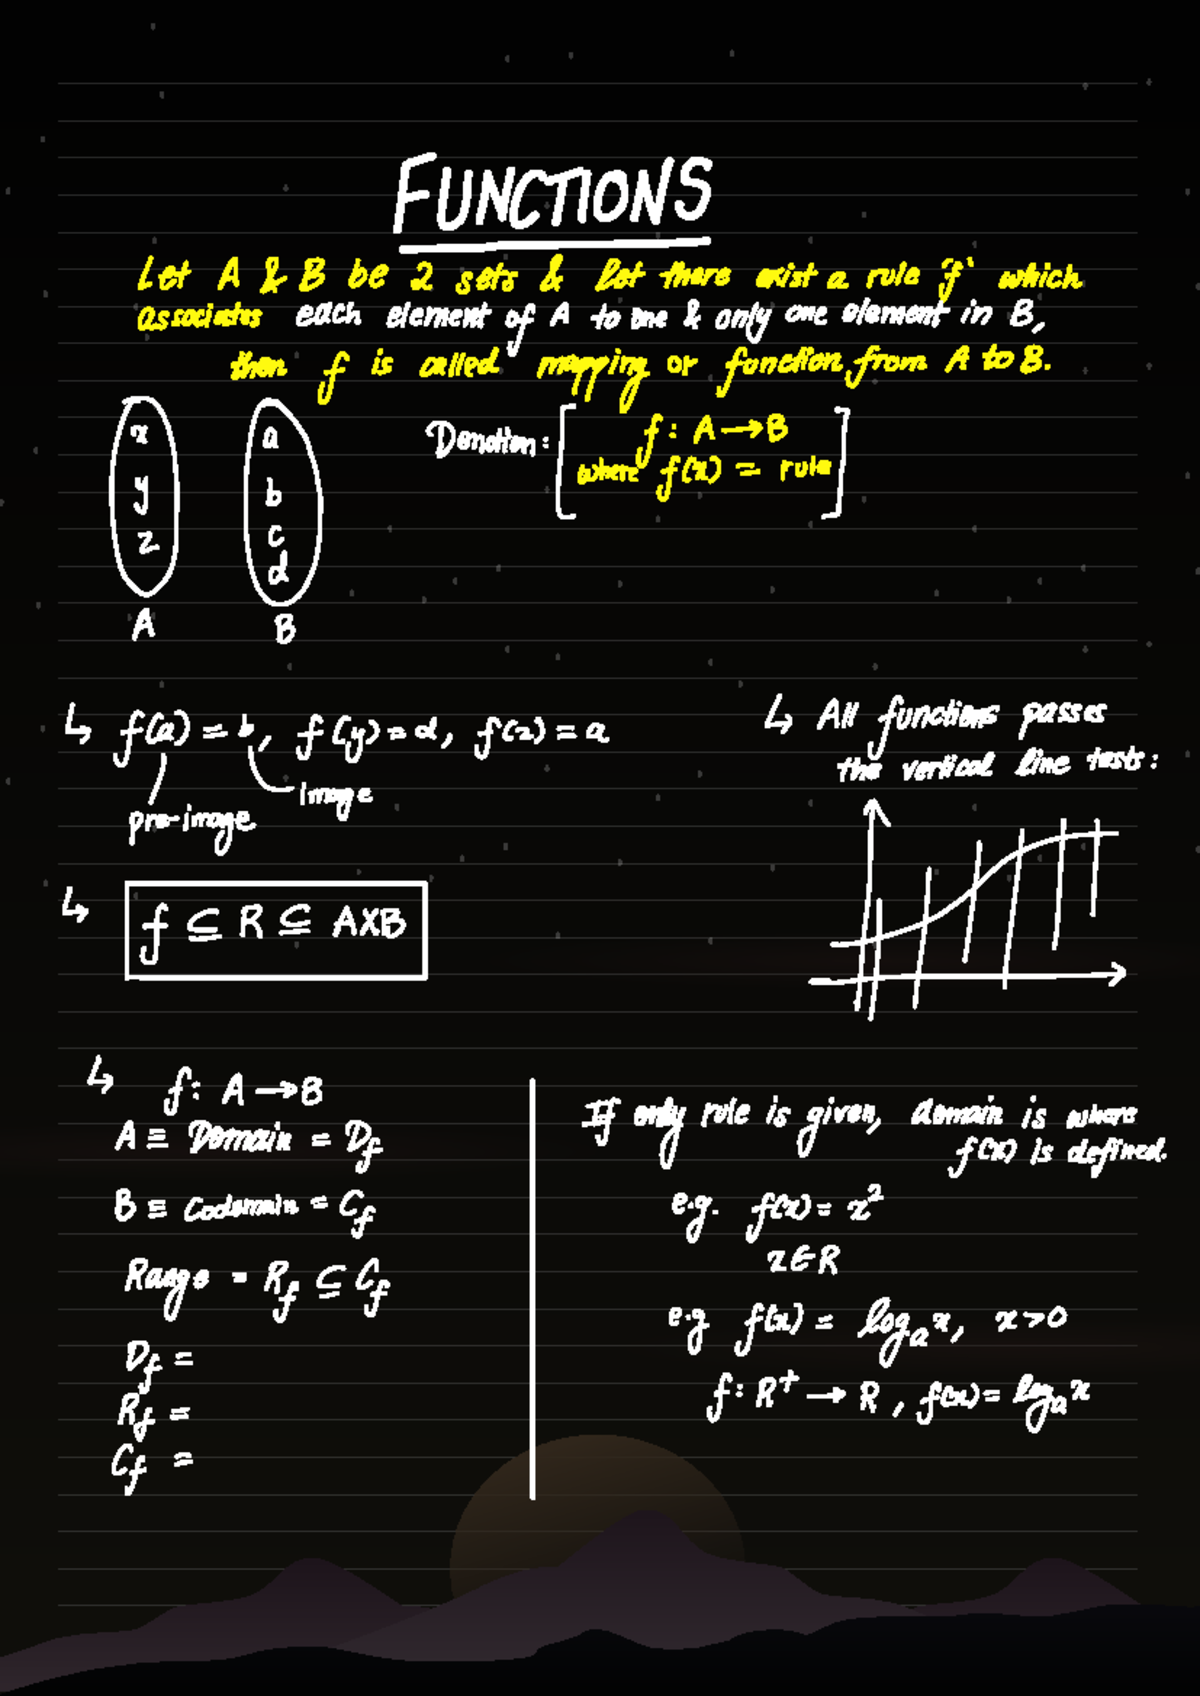 FUNCTIONS
Let A & B be 2 sets & let there exist a rule 'f' which
associates each element of A to one & only one element in B,
then f is called mapping or function from A to B.
x
y
z
A
a
b
c
d
B
Denotion:
f : A → B
where f(x) = rule
↳ f(a) = b, f(y) = d, f(z) = a
pre-image
image
↳ All functions passes
the vertical line tests:
↳ f ⊆ R ⊆ A×B
↳ f: A → B
A ≡ Domain = Df
B ≡ Codomain = Cf
Range = Rf ⊆ Cf
Df =
Rf =
Cf =
If only rule is given, domain is where
f(x) is defined.
e.g. f(x) = x²
x∈R
e.g f(x) = logₐx, x>0
f: R⁺ → R, f(x) = logₐx